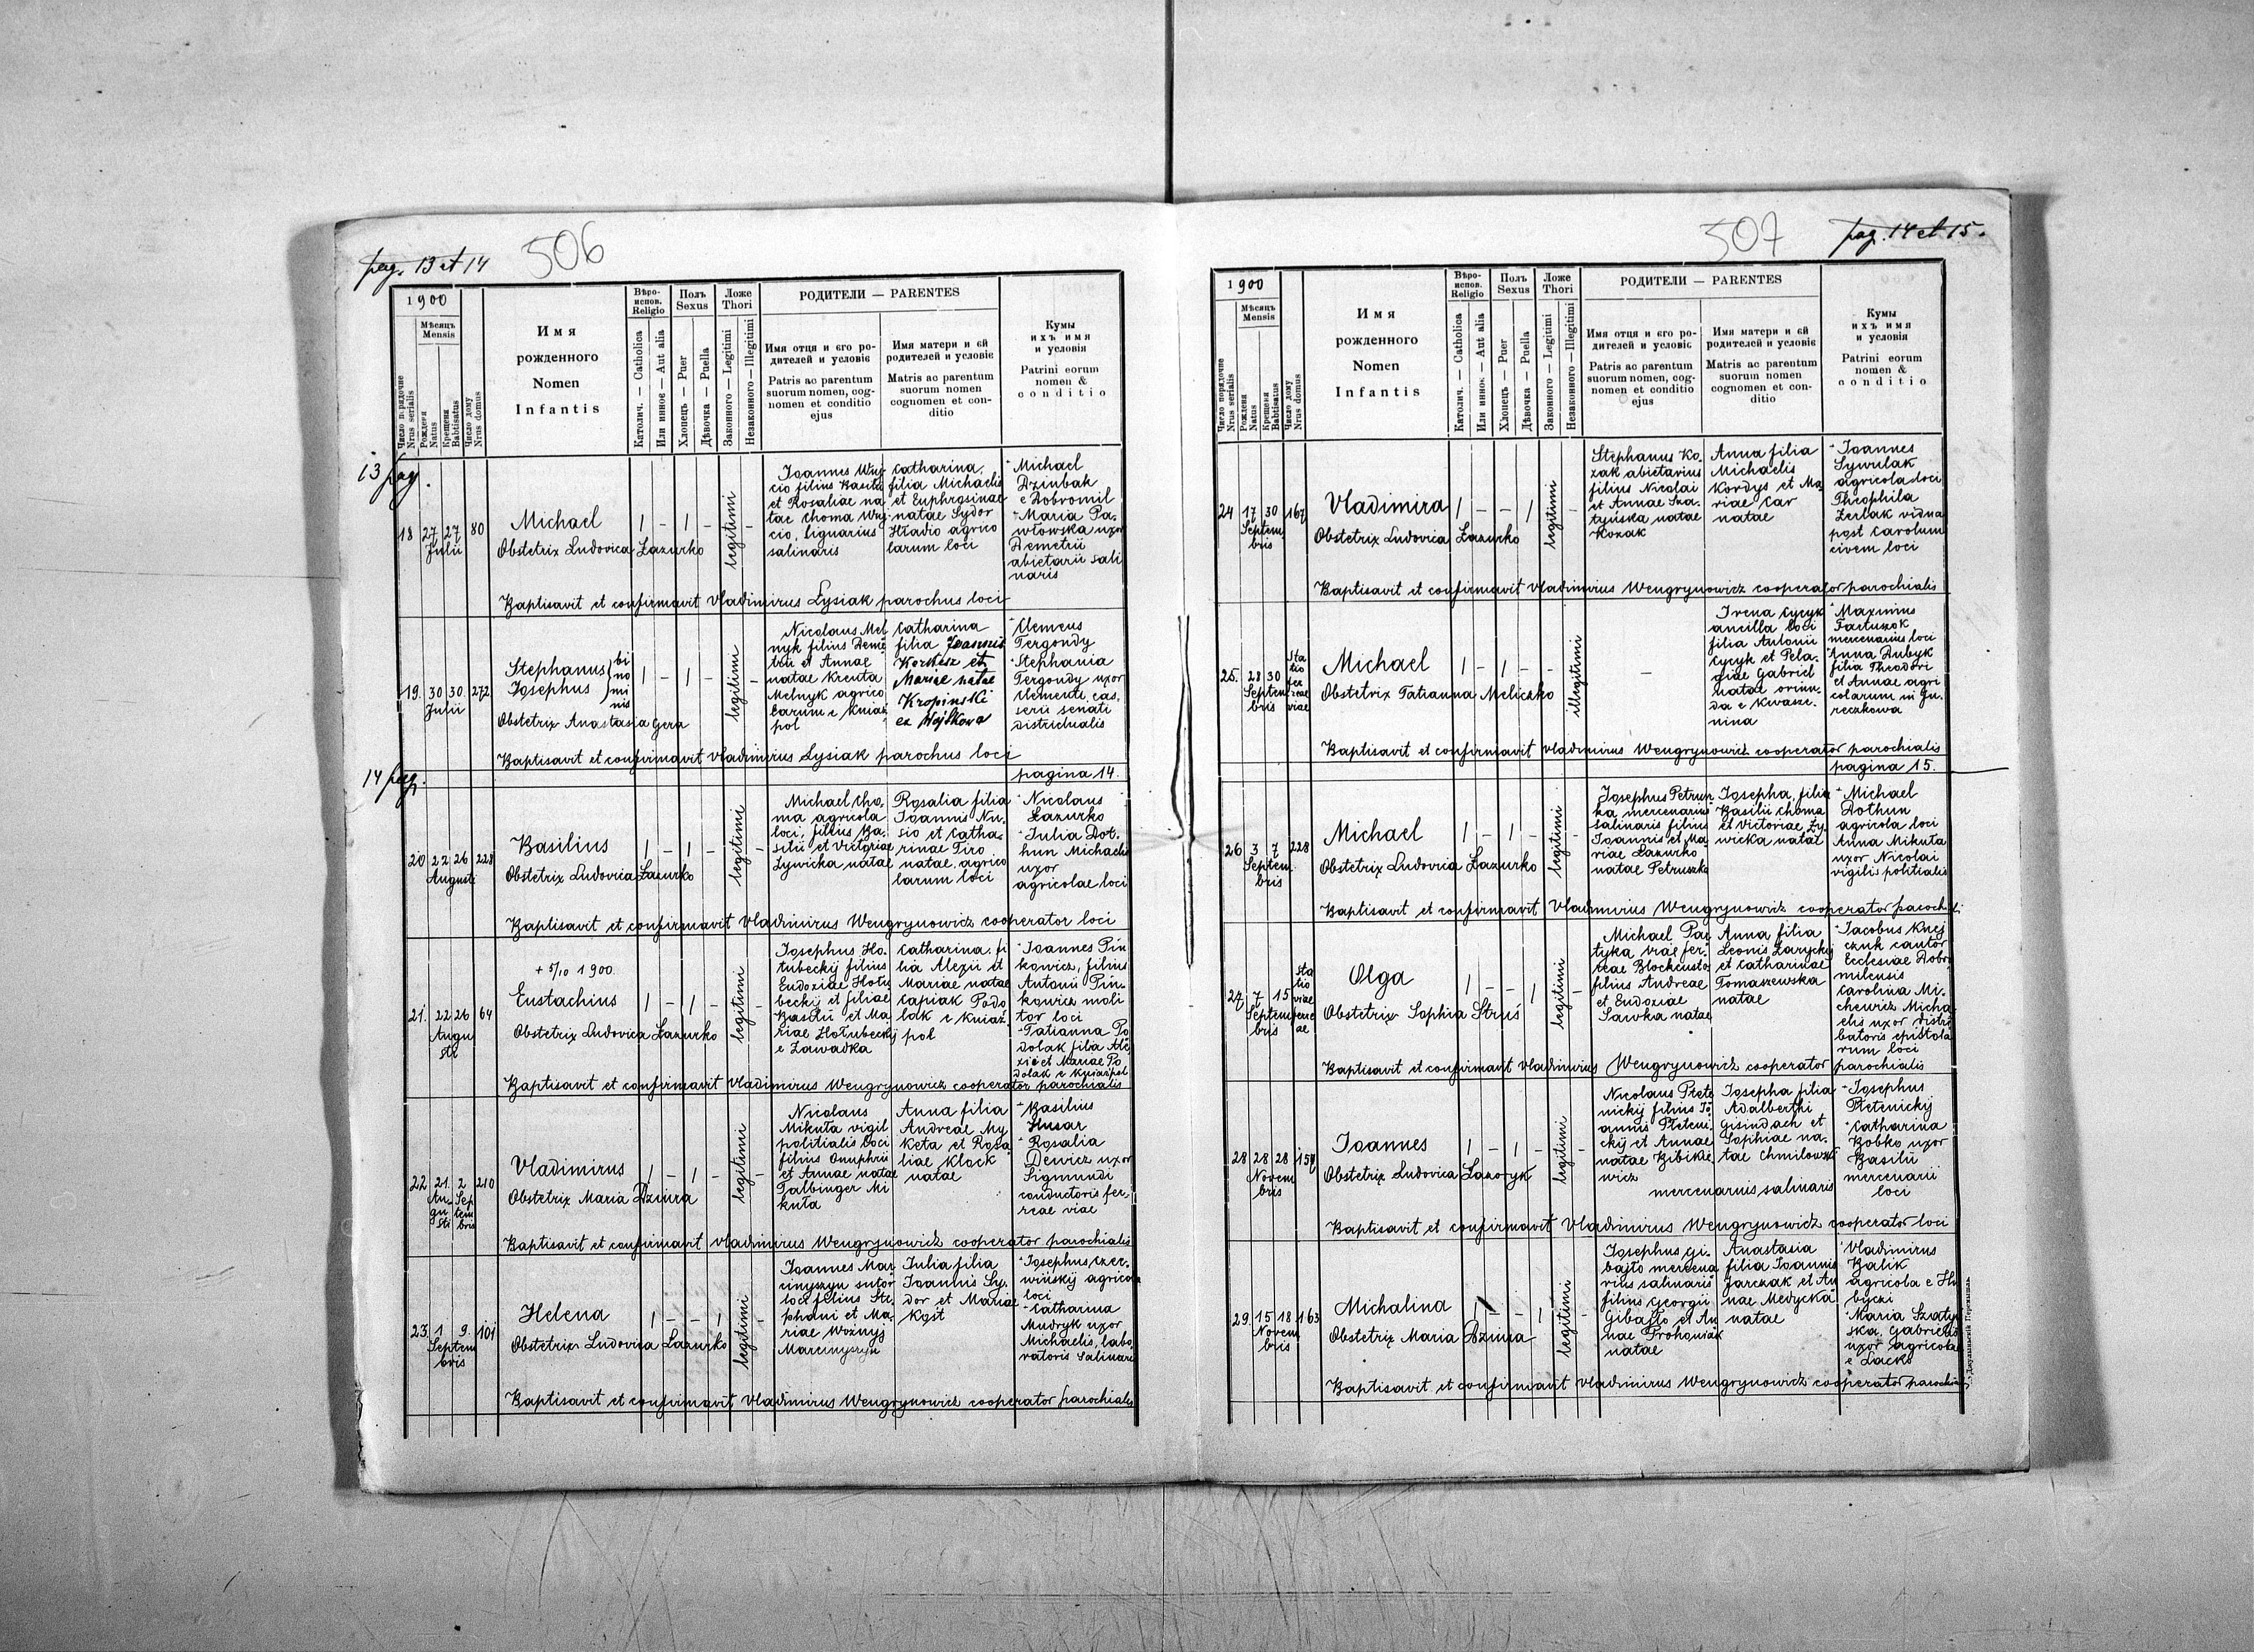 pag. 13 et 14
506
1900
Мѣсяцъ
Mensis
Число порядочне
Nrus serialis
Рожденя
Natus
Крещеня
Babtisatus
Число дому
Nrus domus
Имя
рожденного
Nomen
Infantis
Вѣро-
испов.
Religio
Католич. — Catholica
Или иннoє — Aut alia
Полъ
Sexus
Хлопець — Puer
Дѣвочка — Puella
Ложе
Thori
Законного — Legitimi
Незаконного — Illegitimi
РОДИТЕЛИ — PARENTES
Имя отця и єго ро-
дителей и условіє
Patris ac parentum
suorum nomen, cog-
nomen et conditio
ejus
Имя матери и єй
родителей и условіє
Matris ac parentum
suorum nomen
cognomen et con-
ditio
Кумы
ихъ имя
и условія
Patrini eorum
nomen &
conditio
13 pag.
18 27 27 80
Julii
Michael
Obstetrix Ludovica Łazurko
1 - 1 -
legitimi
-
Ioannes Wry-
cio filius Basilii
et Rosaliae na-
tae Choma Wry-
cio, lignarius
salinaris
Catharina,
filia Michaelis
et Euphrosinae
natae Sydor
Hładio agrico
larum loci
Michael
Dziubak
e Dobromil
Maria Pa-
włowska uxor
Demetrii
abietarii sali
naris
Baptisavit et confirmavit Vladimirus Łysiak parochus loci
19. 30 30. 272
Julii
Stephanus
Josephus
bi
no
mi
nis
Obstetrix Anastasia Gera
1 - 1 -
legitimi
-
Nicolaus Mel
nyk filius Deme
trii et Annae
natae Krenta
Melnyk agrico
larum e Kniaż
pol
Catharina
filia Joannis
Kordasz et
Mariae natae
Kropinski
ex Wojtkowa
Clemens
Tergondy
Stephania
Tergondy uxor
Clementi, cas.
serii senati
districtualis
Baptisavit et confirmavit Vladimirus Łysiak parochus loci
14 pag.
pagina 14.
20 22 26 228
Augusti
Basilius
Obstetrix Ludovica Łazurko
1 - 1 -
legitimi
-
Michael Cho-
ma agricola
loci, filius Ba-
silii et Victoriae
Żywicka natae
Rosalia filia
Ioannis Ku-
sio et Catha-
rinae Tiro
natae, agrico
larum loci
Nicolaus
Łazurko
Iulia Dot-
hun Michaelis
uxor
agricolae loci
Baptisavit et confirmavit Vladimirus Wengrynowicz cooperator loci
21. 22 26 64
Augu
sti
+ 5/10 1900.
Eustachius
Obstetrix Ludovica Łazurko
1 - 1 -
legitimi
-
Iosephus Ho-
łubeckij filius
Eudoxiae Hołu
beckij et filiae
Basilii et Ma-
riae Hołubeckij
e Zawadka
Catharina, fi
lia Alexii et
Mariae natae
Capiak Podo
lak e Kniaż
pol
Ioannes Pin
kowicz, filius
Antonii Pin-
kowicz moli
tor loci
Tatianna Po
dolak filia Ale
xii et Mariae Po
dolak e Kniażpol
Baptisavit et confirmavit Vladimirus Wengrynowicz cooperator parochialis
22 21. 2 210
Au- Sep
gu tem
sti bris
Vladimirus
Obstetrix Maria Dziura
1 - 1 -
legitimi
-
Nicolaus
Mikuta vigil
politialis loci
filius Onuphrii
et Annae natae
Talbinger Mi
kuta
Anna filia
Andreae My
keta et Rosa
liae Klock
natae
Basilius
Husar
Rosalia
Dewicz uxor
Sigmundi
conductoris fer-
reae viae
Baptisavit et confirmavit Vladimirus Wengrynowicz cooperator parochialis
23. 1 9. 101
Septem
bris
Helena
Obstetrix Ludovica Łazurko
1 - - 1
legitimi
-
Ioannes Mar
cinyszyn sutor
loci filius Ste-
phani et Ma-
riae Woźnyj
Marcinyszyn
Iulia filia
Ioannis Sy-
dor et Mariae
Kost
Iosephus Czer-
wińskij agricola
loci
Catharina
Mudryk uxor
Michaelis, labo-
ratoris salinaris
Baptisavit et confirmavit Vladimirus Wengrynowicz cooperator parochialis
507
pag. 14 et 15.
1900
Мѣсяцъ
Mensis
Число порядочне
Nrus serialis
Рожденя
Natus
Крещеня
Babtisatus
Число дому
Nrus domus
Имя
рожденного
Nomen
Infantis
Вѣро-
испов.
Religio
Католич. — Catholica
Или иннoє — Aut alia
Полъ
Sexus
Хлопець — Puer
Дѣвочка — Puella
Ложе
Thori
Законного — Legitimi
Незаконного — Illegitimi
РОДИТЕЛИ — PARENTES
Имя отця и єго ро-
дителей и условіє
Patris ac parentum
suorum nomen, cog-
nomen et conditio
ejus
Имя матери и єй
родителей и условіє
Matris ac parentum
suorum nomen
cognomen et con-
ditio
Кумы
ихъ имя
и условія
Patrini eorum
nomen &
conditio
24 17 30 167
Septem
bris
Vladimira
Obstetrix Ludovica Łazurko
1 - - 1
legitimi
-
Stephanus Ko-
zak abietarius
filius Nicolai
et Annae Sza-
tyńska natae
Kozak
Anna filia
Michaelis
Kordys et Ma
riae Car
natae
Ioannes
Sywulak
agricola loci
Theophila
Żerbak vidua
post Carolum
civem loci
Baptisavit et confirmavit Vladimirus Wengrynowicz cooperator parochialis
25. 28 30
Septem
bris
Sta
tio
fer
reae
viae
Michael
Obstetrix Tatianna Meliczko
1 - 1 - -
illegitimi
-
Irena Cycyk
ancilla loci
filia Antonii
Cycyk et Pela-
giae Gabriel
natae oriun-
da e Kwasze-
nina
Maximus
Fartuszok
mercenarius loci
Anna Dubyk
filia Theodori
et Annae agri
colarum in Hu-
reczkowa
Baptisavit et confirmavit Vladimirus Wengrynowicz cooperator parochialis
pagina 15.
26 3 7 228
Septem
bris
Michael
Obstetrix Ludovica Łazurko
1 - 1 -
legitimi
-
Josephus Petrusz
ka mercenarius
salinaris filius
Ioannis et Ma
riae Łazurko
natae Petruszka
Iosepha, filia
Basilii Choma
et Victoriae Ży-
wicka natae
Michael
Dothun
agricola loci
Anna Mikuta
uxor Nicolai
vigilis politialis
Baptisavit et confirmavit Vladimirus Wengrynowicz cooperator paroch
27 7 15
Septem
bris
Sta
tio
viae
ferre
ae
Olga
Obstetrix Sophia Struś
1 - - 1
legitimi
-
Michael Pac
tyka viae fer-
reae Blockcustos
filius Andreae
et Eudoxiae
Sawka natae
Anna filia
Leonis Zaryckij
et Catharinae
Tomaszewska
natae
Iacobus Kniej
czuk cantor
Ecclesiae Dobro
milensis
Carolina Mi-
chewicz Micha
elis uxor distri
batoris epistola
rum loci
Baptisavit et confirmavit Vladimirus Wengrynowicz cooperator parochialis
28 28 28 157
Novem
bris
Ioannes
Obstetrix Ludovica Łazoryk
1 - 1 -
legitimi
-
Nicolaus Płete
nickij filius Io
annis Płeteni-
ckij et Annae
natae Bibikie
wicz
mercenarius salinaris
Iosepha filia
Adalberthi
Gisindach et
Sophiae na-
tae Chmilowska
Iosephus
Płetenickij
Catharina
Bobko uxor
Basilii
mercenarii
loci
Baptisavit et confirmavit Vladimirus Wengrynowicz cooperator loci
29. 15 18 163
Novem
bris
Michalina
Obstetrix Maria Dziura
1 - - 1
legitimi
-
Josephus Gi-
bajło mercena
rius salinaris
filius Georgii
Gibajło et An
nae Prohoniak
natae
Anastasia
filia Ioannis
Jarczak et An
nae Medycka
natae
Vladimirus
Balik
agricola e Hu
byczi
Maria Szaty
ska, Gabrielis
uxor agricola
e Lacko
Baptisavit et confirmavit Vladimirus Wengrynowicz cooperator parochialis